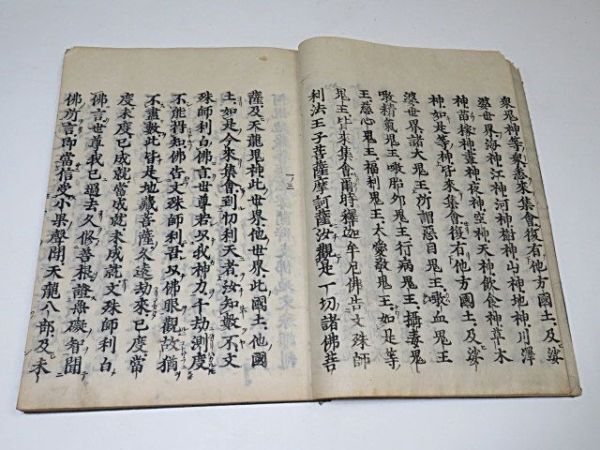 衆鬼神等衆悉來集會復有他方國土及娑
婆世界海神江神河神樹神山神地神川澤
神苗稼神晝神夜神空神天神飲食神草木
神如是等神皆來集會復有他方國土及娑
婆世界諸大鬼王所謂惡目鬼王噉血鬼王
噉精氣鬼王噉胎卵鬼王行病鬼王攝毒鬼
王慈心鬼王福利鬼王大愛敬鬼王如是等
鬼王皆來集會爾時釋迦牟尼佛告文殊師
利法王子菩薩摩訶薩汝觀是一切諸佛菩
薩及天龍鬼神此世界他世界此國土他國
土如是今來集會到忉利天者汝知數不文
殊師利白佛言世尊若以我神力千劫測度
不能得知佛告文殊師利吾以佛眼觀故猶
不盡數此皆是地藏菩薩久遠劫來已度當
度未度已成就當成就未成就文殊師利白
佛言世尊我已過去久修善根證無礙智聞
佛所言即當信受小果聲聞天龍八部及未